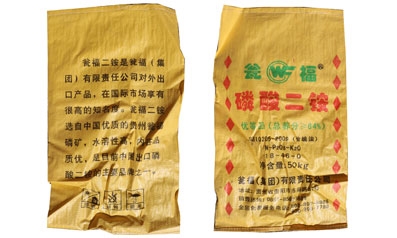 瓮福二铵是瓮福（集
团）有限责任公司对外出
口产品，在国际市场享有
很高的知名度。瓮福二铵
选自中国优质的贵州瓮福
磷矿，水溶性高，内在品
质优，是目前中国出口磷
酸二铵的主要品牌之一。
瓮 WF 福®
磷酸二铵
优等品（总养分≥64%）
N-P₂O₅-K₂O
18-46-0
净含量50kg
瓮福（集团）有限责任公司